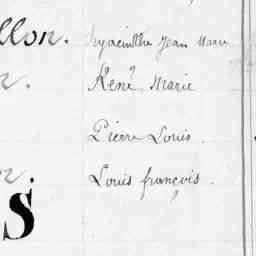 llon. hyacinthe Jean Marie
n. René Marie
Pierre Louis.
n. Louis françois.
S